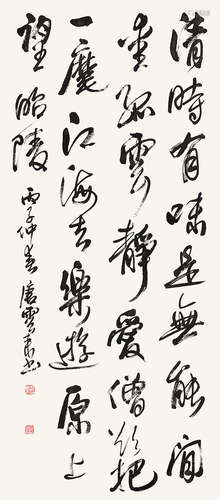 清時有味是無能閒
愛孤雲靜愛僧欲把
一麾江海去樂遊原上
望昭陵
丙子仲春